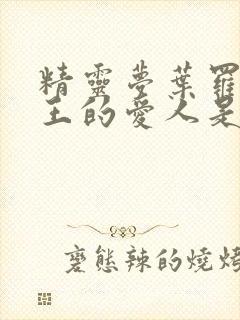 精靈夢葉羅
王的愛人是
變態辣的燒烤